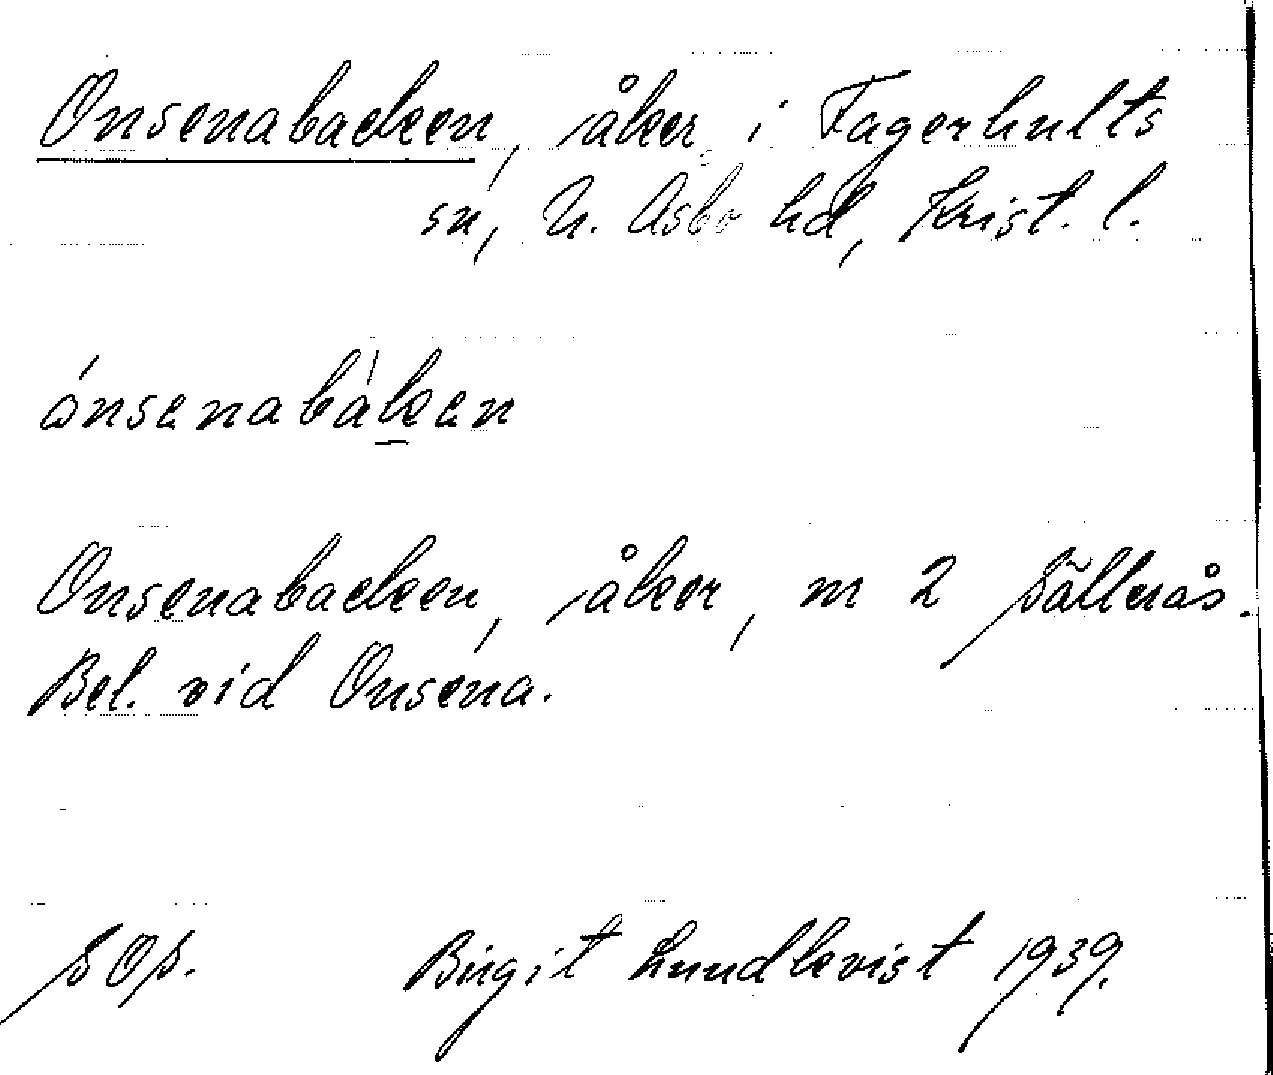 Onsenabacken, åker i Fagerhults
sn, N. Åsbo hd, Krist. l.
ónsenabàken
Onsenabacken, åker, m 2 Sällerås.
Bel. vid Onsena.
SOS. Birgit Lundkvist 1939.